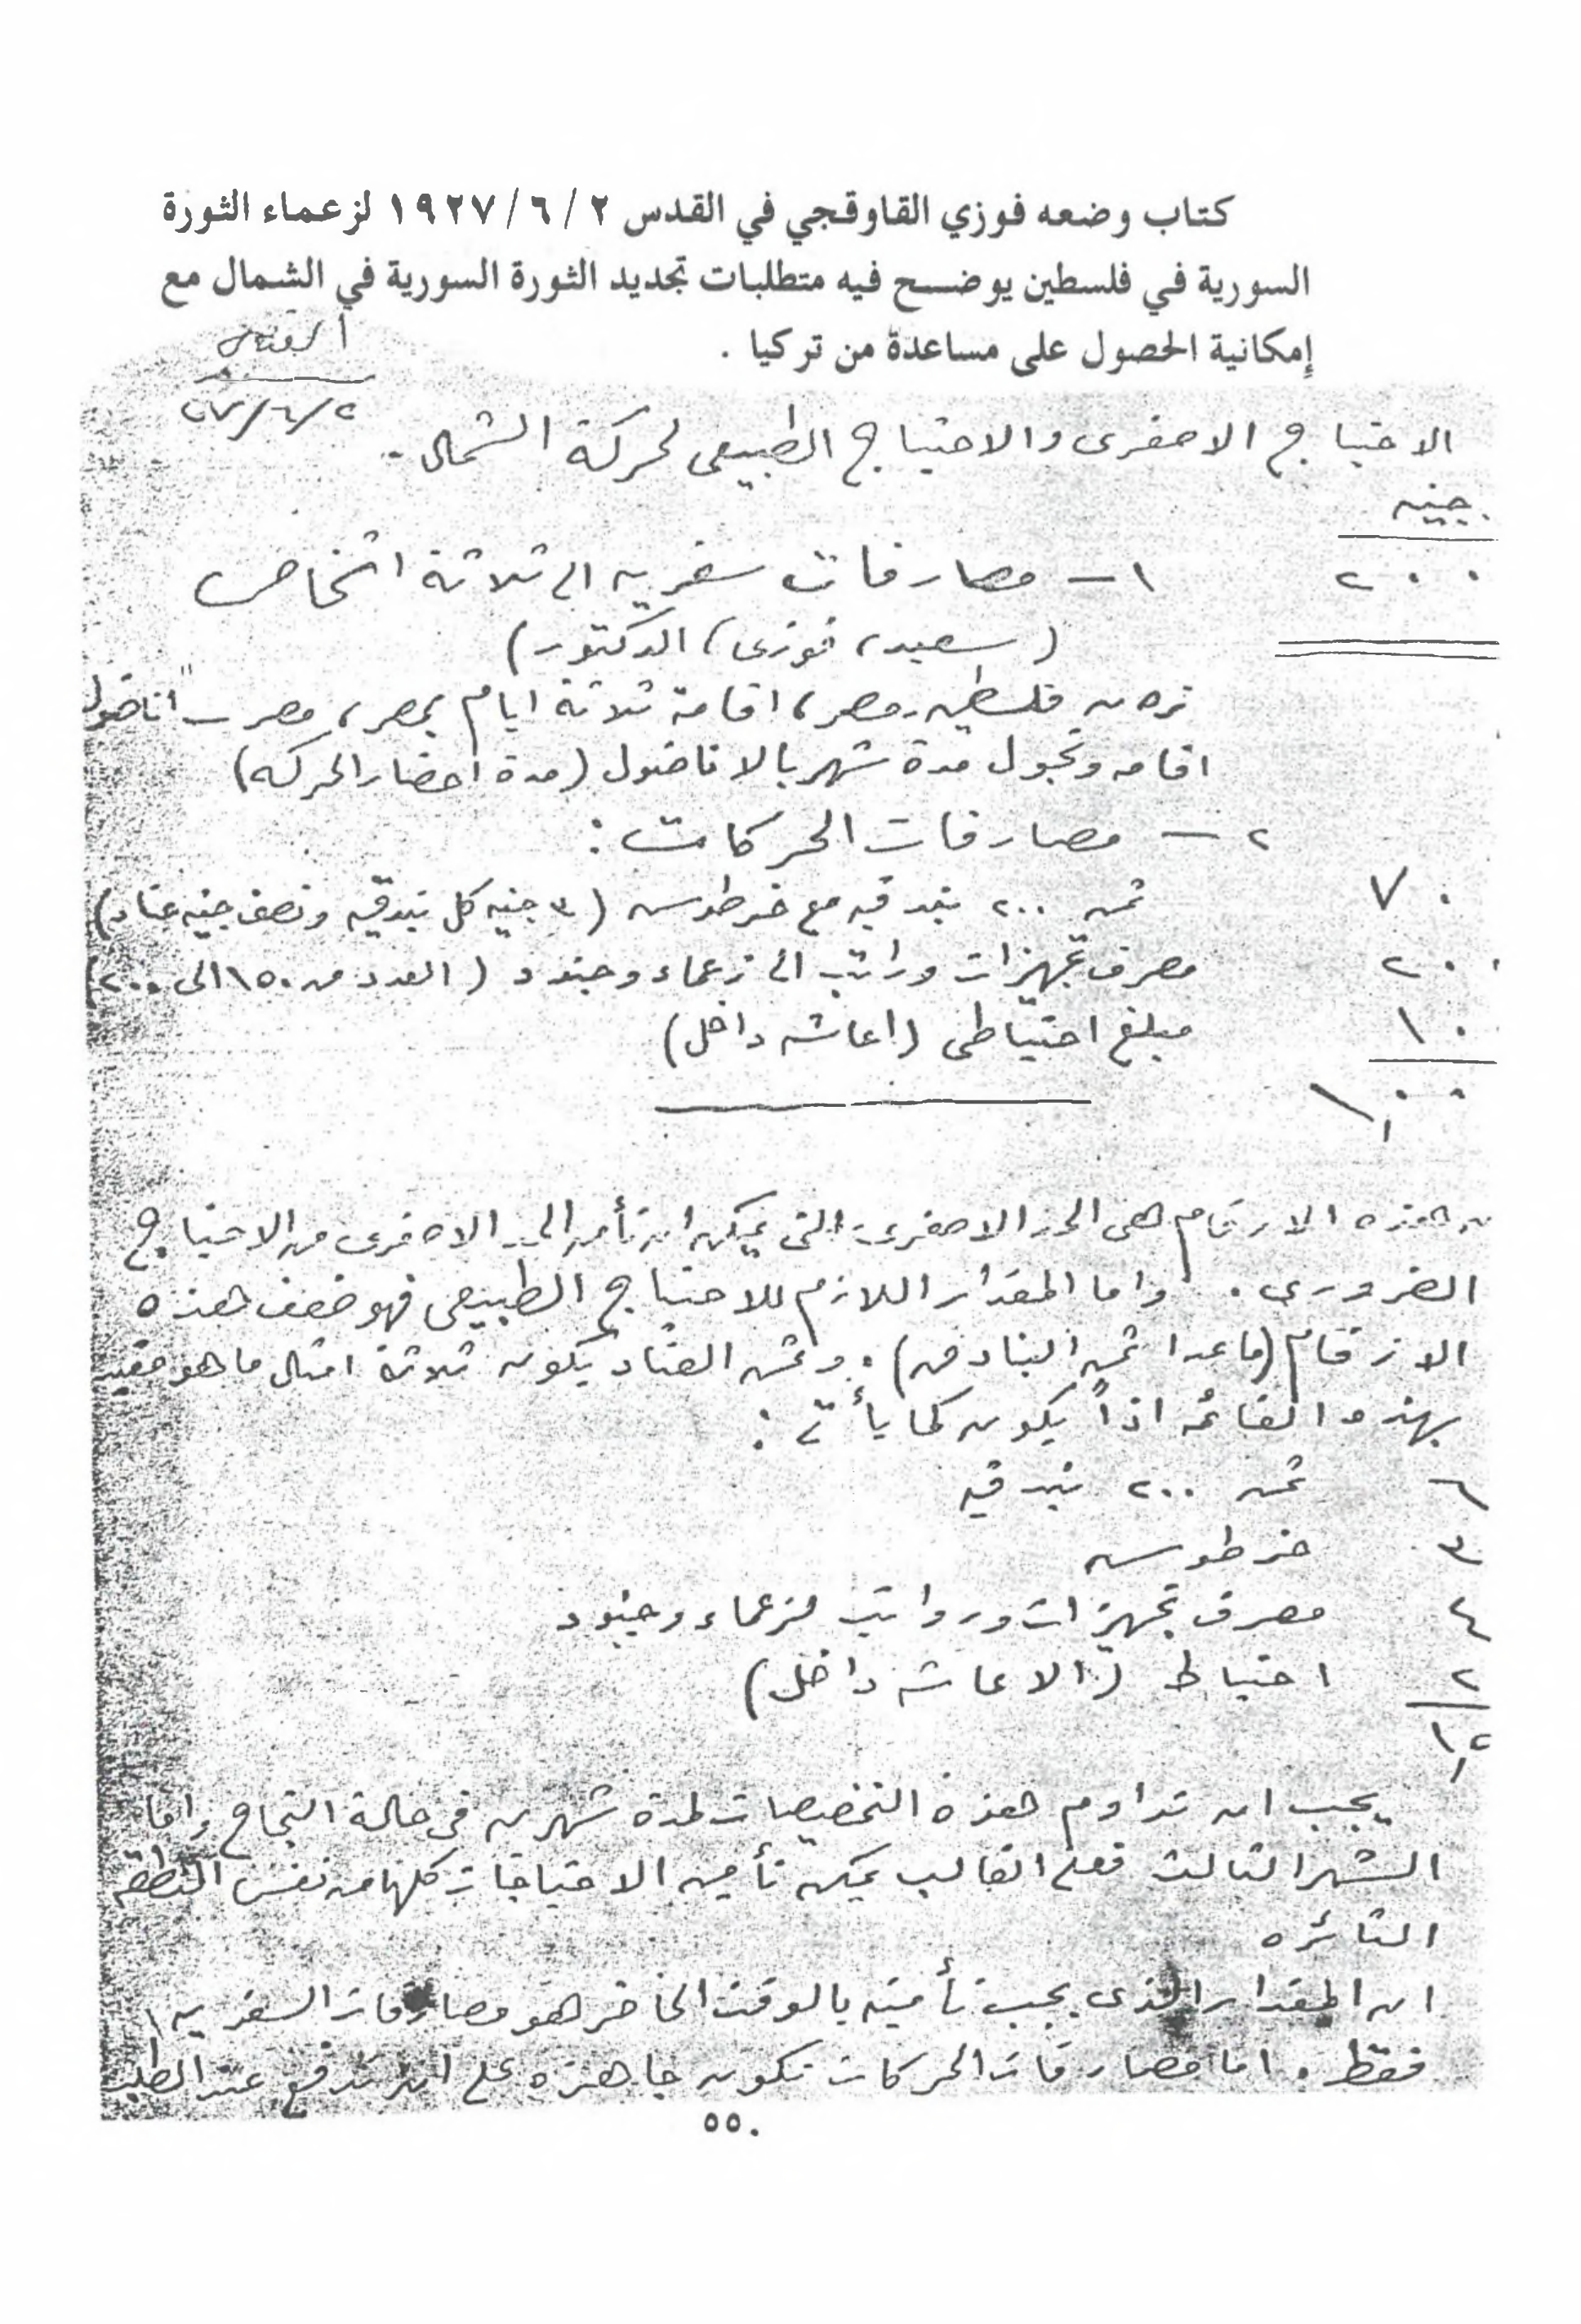 كتاب وضعه فوزي القاوقجي في القدس ٢ / ٦ / ١٩٢٧ لزعماء الثورة
السورية في فلسطين يوضح فيه متطلبات تجديد الثورة السورية في الشمال مع
إمكانية الحصول على مساعدة من تركيا .
القدس
٢/٦/٢٧
الاحتياج الاصغرى والاحتياج الطبيعى لحركة الشمال .
جنيه
٢٠٠ ١ - مصارفات سفريه الى ثلاثة اشخاص
(سعيد، فوزى، الدكتور)
فلسطين - مصر، اقامة ثلاثة ايام بمصر، مصر - اناضول
اقامه وتجول مدة شهر بالاناضول (مدة احضار الحركه)
٢ - مصارفات الحركات :
٧٠٠ ثمن ٢٠٠ بندقيه مع خرطوش (٣ جنيه كل بندقيه ونصف جنيه عتاد)
٢٠٠ مصرف تجهيزات ورواتب الى زعماء وجنود (العدد من ١٥٠ الى ٢٠٠)
١٠٠ مبلغ احتياطى (اعاشه داخل)
١,٠٠٠
هذه الارقام هى الحد الاصغرى التى يمكن ان تأمن الحد الاصغرى من الاحتياج
الضرورى . واما المقدار اللازم للاحتياج الطبيعى فهو ضعف هذه
الارقام (ماعدا ثمن البنادق) . وثمن العتاد يكون ثلاثة امثال ما هو مقيد
بهذه القائمه اذاً يكون كما يأتى :
٦٠٠ ثمن ٢٠٠ بندقيه
٣٠٠ خرطوش
٤٠٠ مصرف تجهيزات ورواتب لزعماء وجنود
٢٠٠ احتياط (الاعاشه داخل)
يجب ان تداوم هذه التخصيصات لمدة شهرين فى حالة النجاح واما
الشهر الثالث فعلى الغالب يمكن تأمين الاحتياجات كلها من نفس المنطقه
الثائره
ان المقدار الذى يجب تأمينه بالوقت الحاضر هو مصارفات السفريه
فقط . اما مصارفات الحركات تكون جاهزه على ان تدفع عند الطلب
٥٥٠